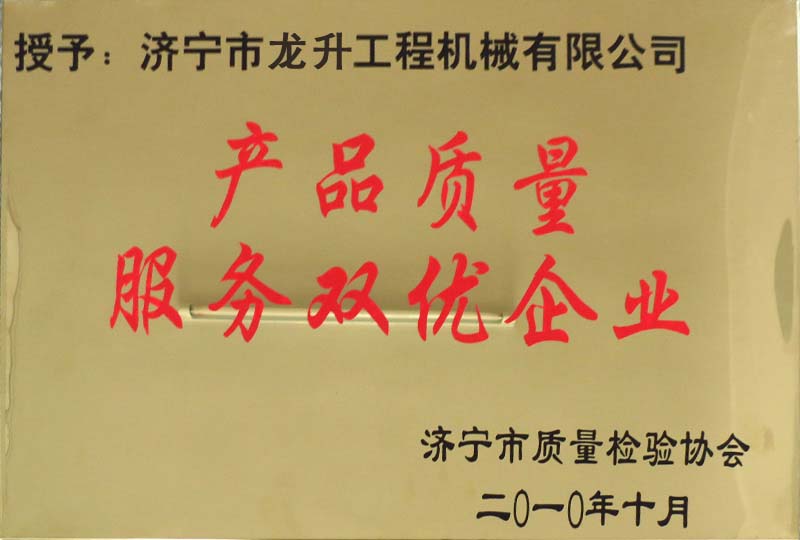 授予：济宁市龙升工程机械有限公司
产品质量
服务双优企业
济宁市质量检验协会
二〇一〇年十月